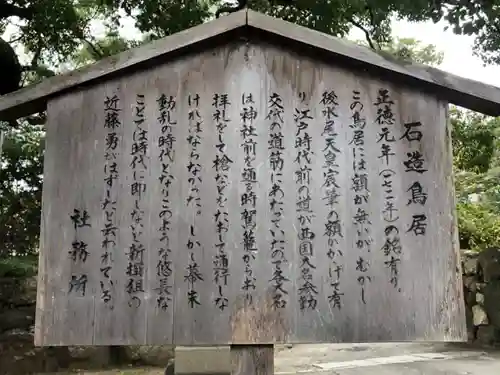 石造鳥居
正徳元年(一七一一)の銘有り。
この鳥居には額が無いがむかし
後水尾天皇宸筆の額がかけて有
り、江戸時代前の道が西国大名参勤
交代の道筋にあたっていたので大名
は神社前を通る時駕籠からおり
拝礼をして槍などをたおして通行しな
ければならなかった。しかし幕末
動乱の時代となりこのような悠長な
ことでは時代に即しないと新撰組の
近藤勇がはずしたと云われている。
社務所